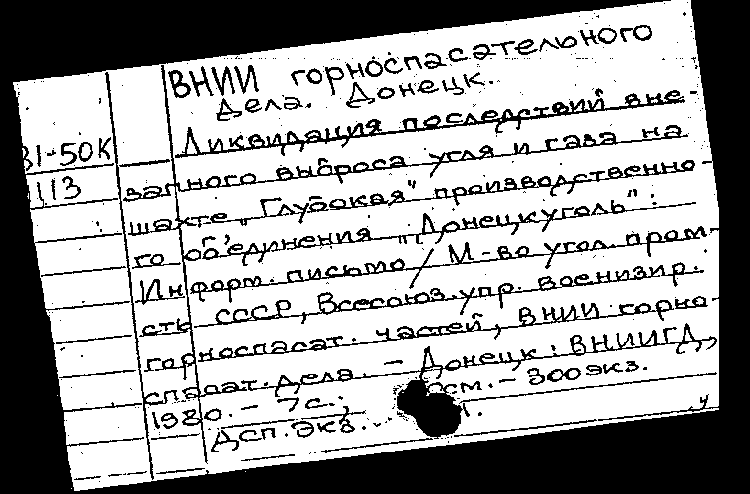 ВНИИ горноспасательного
дела. Донецк.
31-50К
113
Ликвидация последствий вне-
запного выброса угля и газа на
шахте „Глубокая" производственно-
го объединения „Донецкуголь":
Информ. письмо / М-во угол. пром-
сти СССР, Всесоюз. упр. военизир.
горноспасат. частей, ВНИИ горно-
спасат. дела. – Донецк: ВНИИГД,
1980. – 7 с.; см. – 300 экз.
Дсп. Экз.